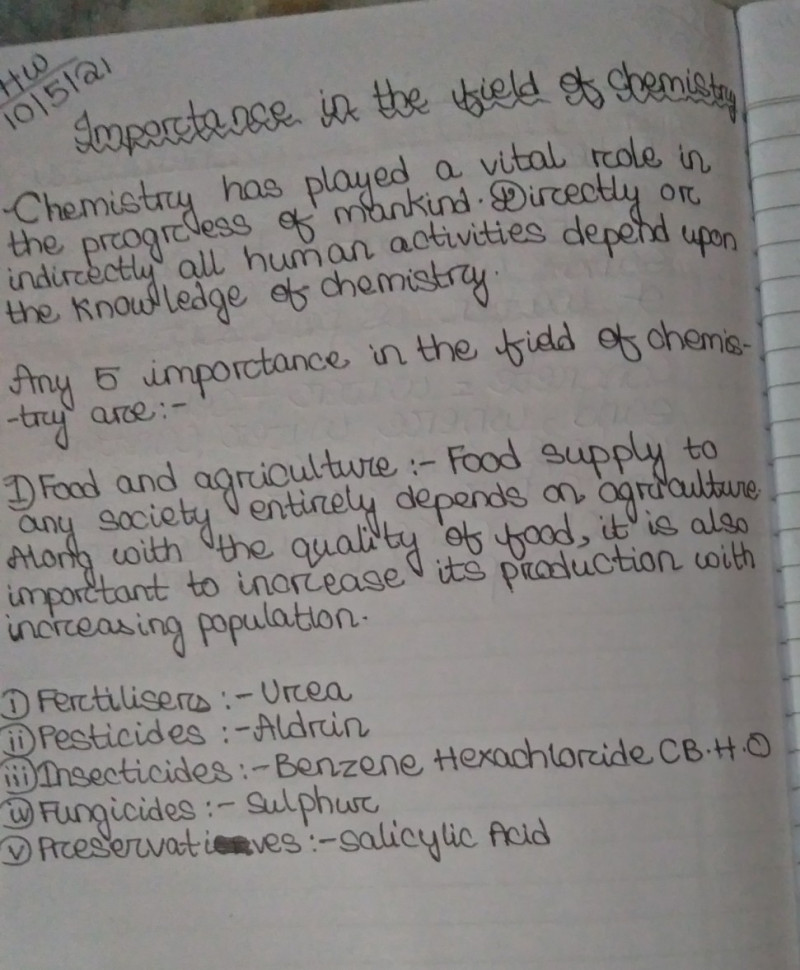 HW
10/5/21
Importance in the field of chemistry
Chemistry has played a vital role in
the progress of mankind. Directly or
indirectly all human activities depend upon
the knowledge of chemistry.
Any 5 importance in the field of chemis-
-try are:-
I) Food and agriculture :- Food supply to
any society entirely depends on agriculture
Along with the quality of food, it is also
important to increase its production with
increasing population.
i) Fertilisers :- Urea
ii) Pesticides :- Aldrin
iii) Insecticides :- Benzene Hexachloride CB.H.C)
iv) Fungicides :- Sulphur
v) Preservatives :- Salicylic Acid